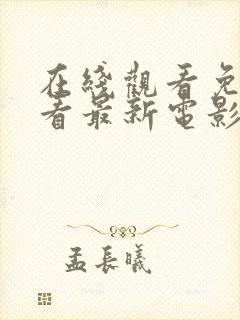 在綫觀看免
看最新電影
孟長曦